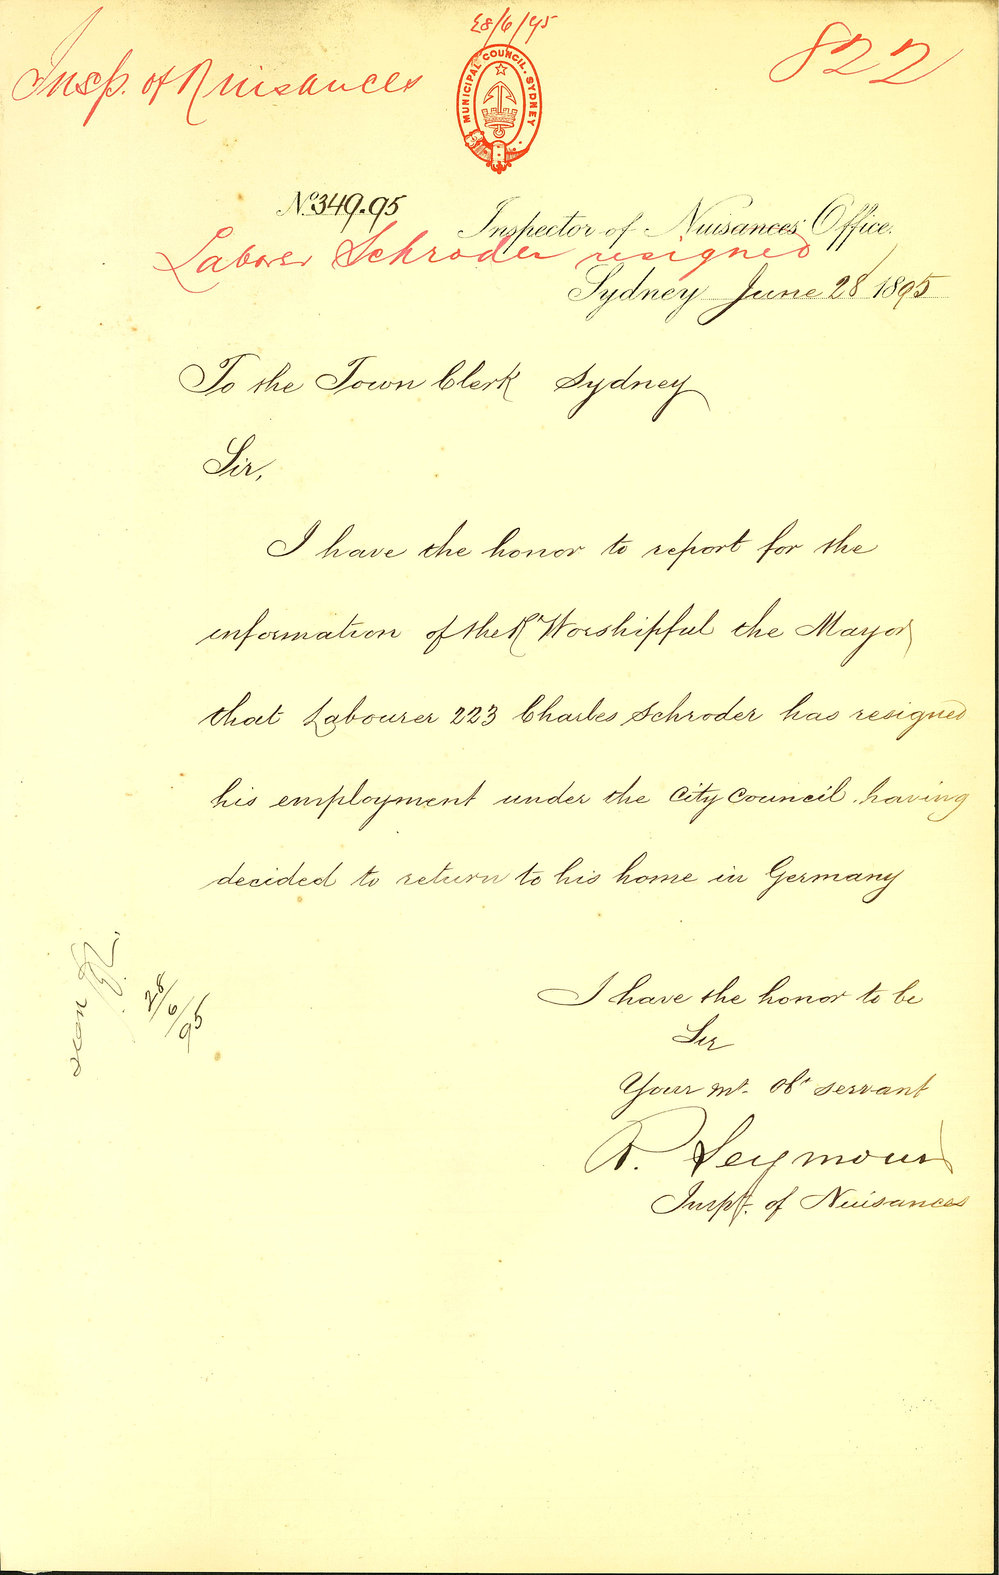 28/6/95
Insp. of Nuisances
822
MUNICIPAL COUNCIL. SYDNEY
No. 349.95
Inspector of Nuisances Office.
Laborer Schroder resigned
Sydney June 28 1895
To the Town Clerk Sydney
Sir,
I have the honor to report for the
information of the Rt Worshipful the Mayor
that Labourer 223 Charles Schroder has resigned
his employment under the City Council having
decided to return to his home in Germany
I have the honor to be
Sir
Your mt. obt servant
R. Seymour
Inspt. of Nuisances
seen
28/6/95